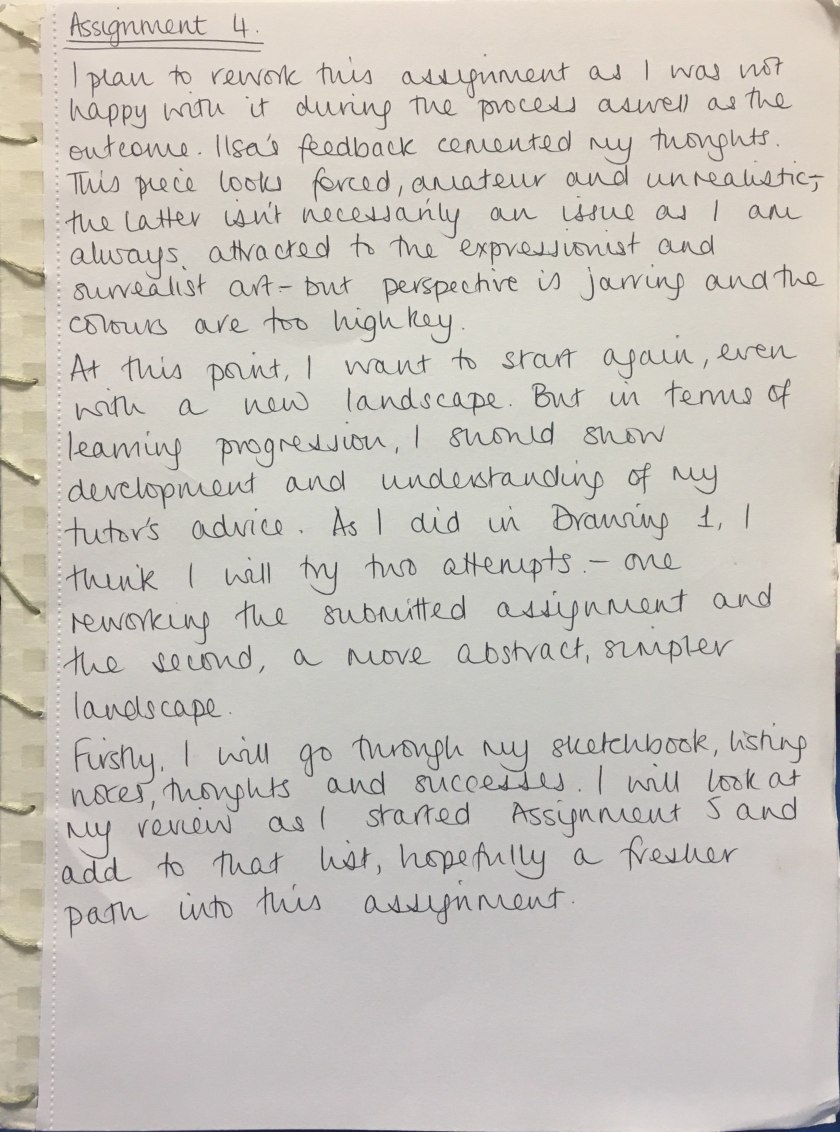 Assignment 4.
I plan to rework this assignment as I was not
happy with it during the process aswell as the
outcome. Ilsa's feedback cemented my thoughts.
This piece looks forced, amateur and unrealistic,-
the latter isn't necessarily an issue as I am
always attracted to the expressionist and
surrealist art - but perspective is jarring and the
colours are too high key.
At this point, I want to start again, even
with a new landscape. But in terms of
learning progression, I should show
development and understanding of my
tutor's advice. As I did in Drawing 1, I
think I will try two attempts - one
reworking the submitted assignment and
the second, a more abstract, simpler
landscape.
Firstly, I will go through my sketchbook, listing
notes, thoughts and successes. I will look at
my review as I started Assignment 5 and
add to that list, hopefully a fresher
path into this assignment.